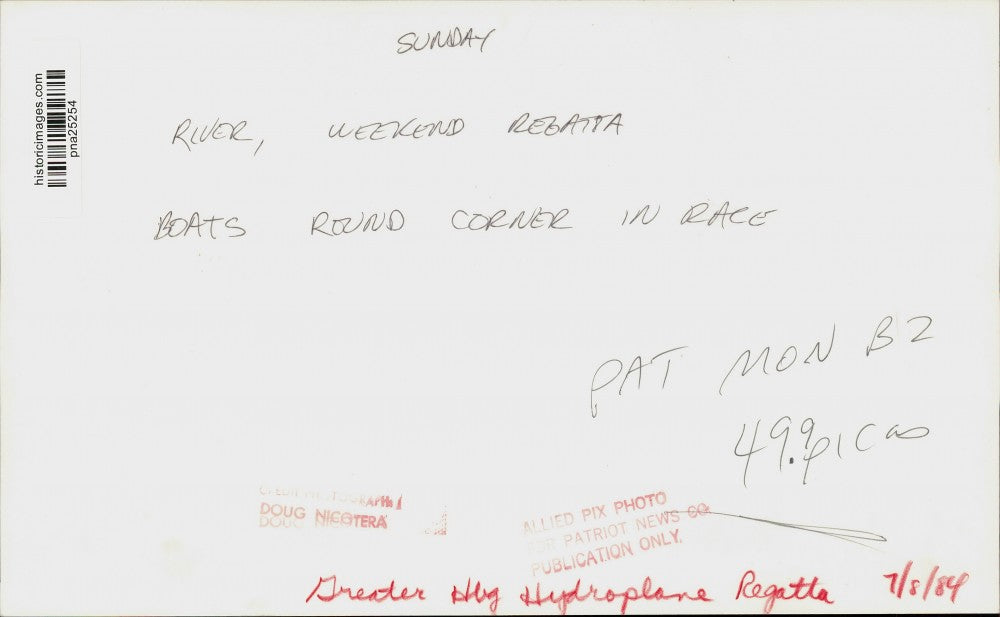 SUNDAY
historicimages.com
pna25254
RIVER, WEEKEND REGATTA
BOATS ROUND CORNER IN RACE
PAT MON B2
49.9 PICAS
DOUG NICOTERA
ALLIED PIX PHOTO
FOR PATRIOT NEWS CO.
PUBLICATION ONLY.
Greater Hbg Hydroplane Regatta 7/8/84